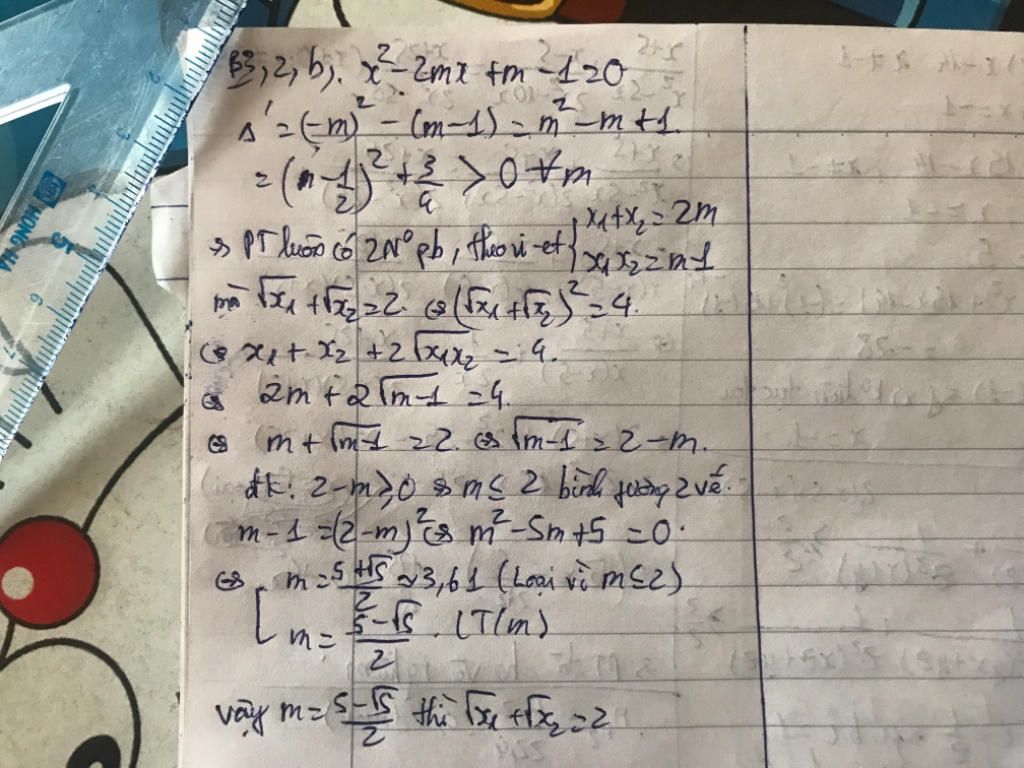 B3, 2, b). x² - 2mx + m - 1 = 0
Δ' = (-m)² - (m-1) = m² - m + 1.
= (m - 1/2)² + 3/4 > 0 ∀m
=> PT luôn có 2N⁰ pb, theo vi-et { x₁+x₂ = 2m
x₁x₂ = m-1
mà √x₁ + √x₂ = 2. <=> (√x₁ + √x₂)² = 4.
<=> x₁ + x₂ + 2√x₁x₂ = 4.
<=> 2m + 2√m-1 = 4.
<=> m + √m-1 = 2. <=> √m-1 = 2 - m.
đk: 2-m ≥ 0 <=> m ≤ 2 bình fương 2 vế.
m - 1 = (2-m)² <=> m² - 5m + 5 = 0.
<=> [ m = 5+√5/2 ≈ 3,61 (Loại vì m ≤ 2)
m = 5-√5/2 . (T/m)
vậy m = 5-√5/2 thì √x₁ + √x₂ = 2
HONG HA